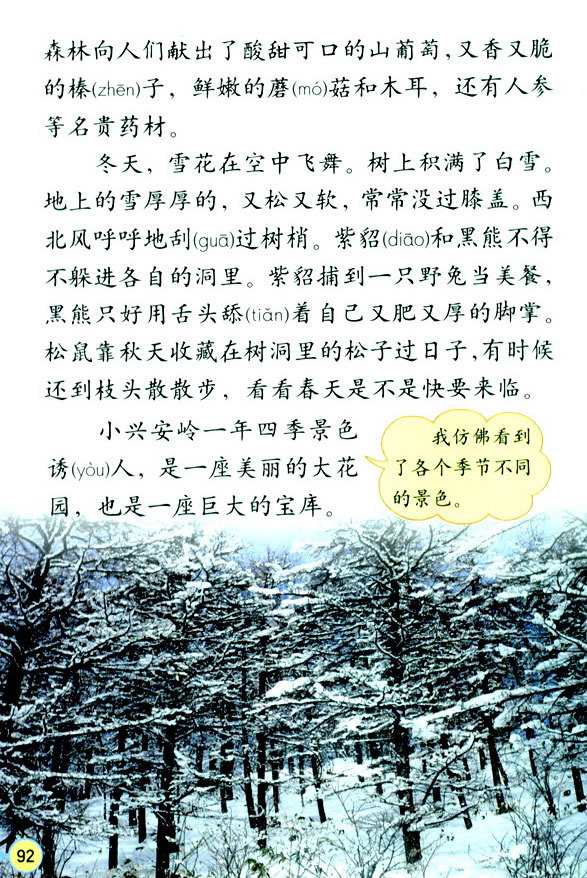 森林向人们献出了酸甜可口的山葡萄，又香又脆
的榛(zhēn)子，鲜嫩的蘑(mó)菇和木耳，还有人参
等名贵药材。
冬天，雪花在空中飞舞。树上积满了白雪。
地上的雪厚厚的，又松又软，常常没过膝盖。西
北风呼呼地刮(guā)过树梢。紫貂(diāo)和黑熊不得
不躲进各自的洞里。紫貂捕到一只野兔当美餐，
黑熊只好用舌头舔(tiǎn)着自己又肥又厚的脚掌。
松鼠靠秋天收藏在树洞里的松子过日子，有时候
还到枝头散散步，看看春天是不是快要来临。
小兴安岭一年四季景色
诱(yòu)人，是一座美丽的大花
园，也是一座巨大的宝库。
我仿佛看到
了各个季节不同
的景色。
92